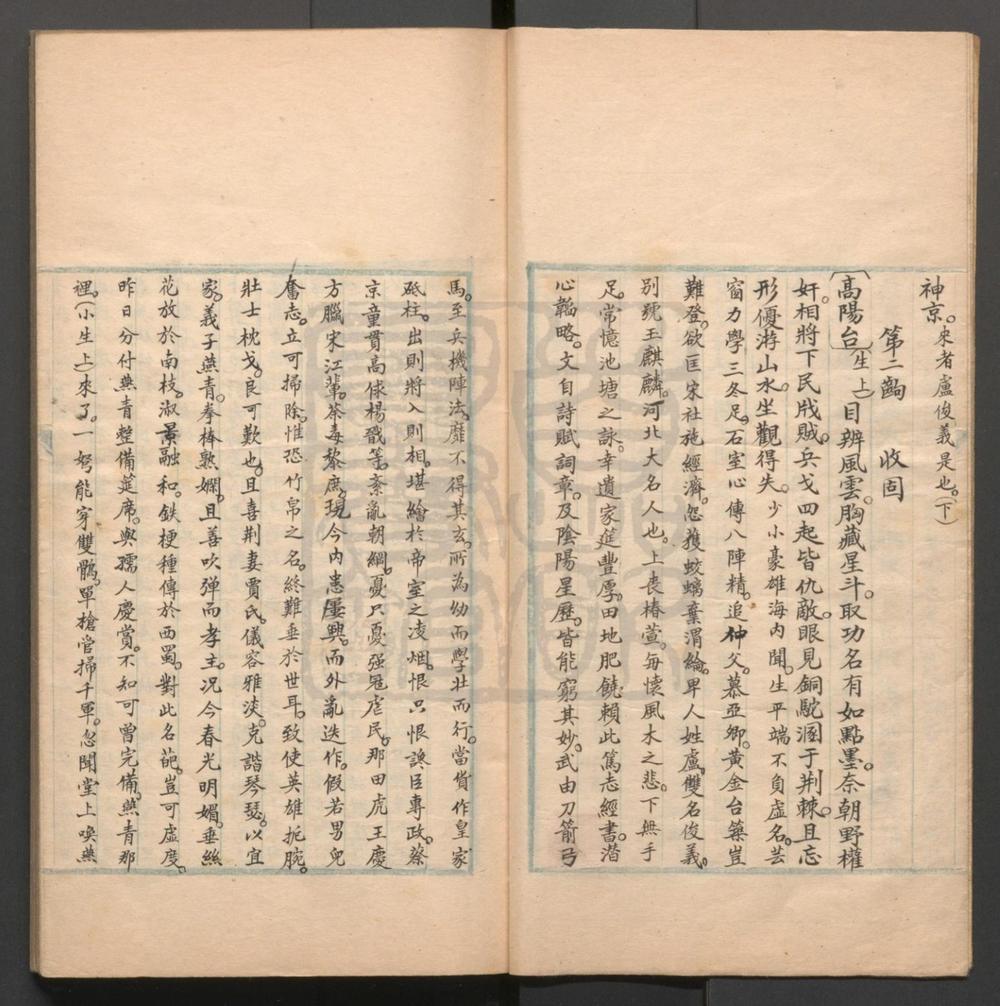 神京。來者盧俊義是也。(下)
第二齣　收固
〔高陽台〕(生上)目辨風雲。胸藏星斗。取功名有如點墨。奈朝野權
奸。相將下民戕賊。兵戈四起皆仇敵。眼見銅駝溷于荆棘。且忘
形優游山水。坐觀得失。少小豪雄海内聞。生平端不負虛名。芸
窗力學三冬足。石室心傳八陣精。追仲父。慕亞卿。黃金台築豈
難登。欲匡宋社施經濟。怨獲蛟螭棄渭綸。卑人姓盧。雙名俊義。
別號玉麒麟。河北大名人也。上喪椿萱。每懷風木之悲。下無手
足。常憶池塘之詠。幸遺家莚豐厚。田地肥饒。賴此篤志經書。潛
心韜略。文自詩賦詞章。及陰陽星歷。皆能窮其妙。武由刀箭弓
馬。至兵機陣法。靡不得其玄。所為幼而學壯而行。當貨作皇家
砥柱。出則將入則相。堪繪於帝室之凌烟。恨只恨諛臣專政。蔡
京童貫高俅楊戩等。紊亂朝綱。憂只憂强冦虐民。那田虎王慶
方臘宋江輩。荼毒黎庶。現今内恚屢興。而外亂迭作。假若男兒
奮志。立可掃除。惟恐竹帛之名。終難垂於世耳。致使英雄扼腕。
壯士枕戈。良可歎也。且喜荆妻賈氏。儀容雅淡。克諧琴瑟。以宜
家。義子燕青。拳棒熟嫻。且善吹彈而孝主。况今春光明媚。垂絲
花放於南枝。淑景融和。鉄梗種傳於西蜀。對此名葩。豈可虛度。
昨日分付燕青整備莚席。與孺人慶賞。不知可曾完備。燕青那
裡。(小生上)來了。一弩能穿雙鵰。單槍管掃千軍。忽聞堂上喚燕